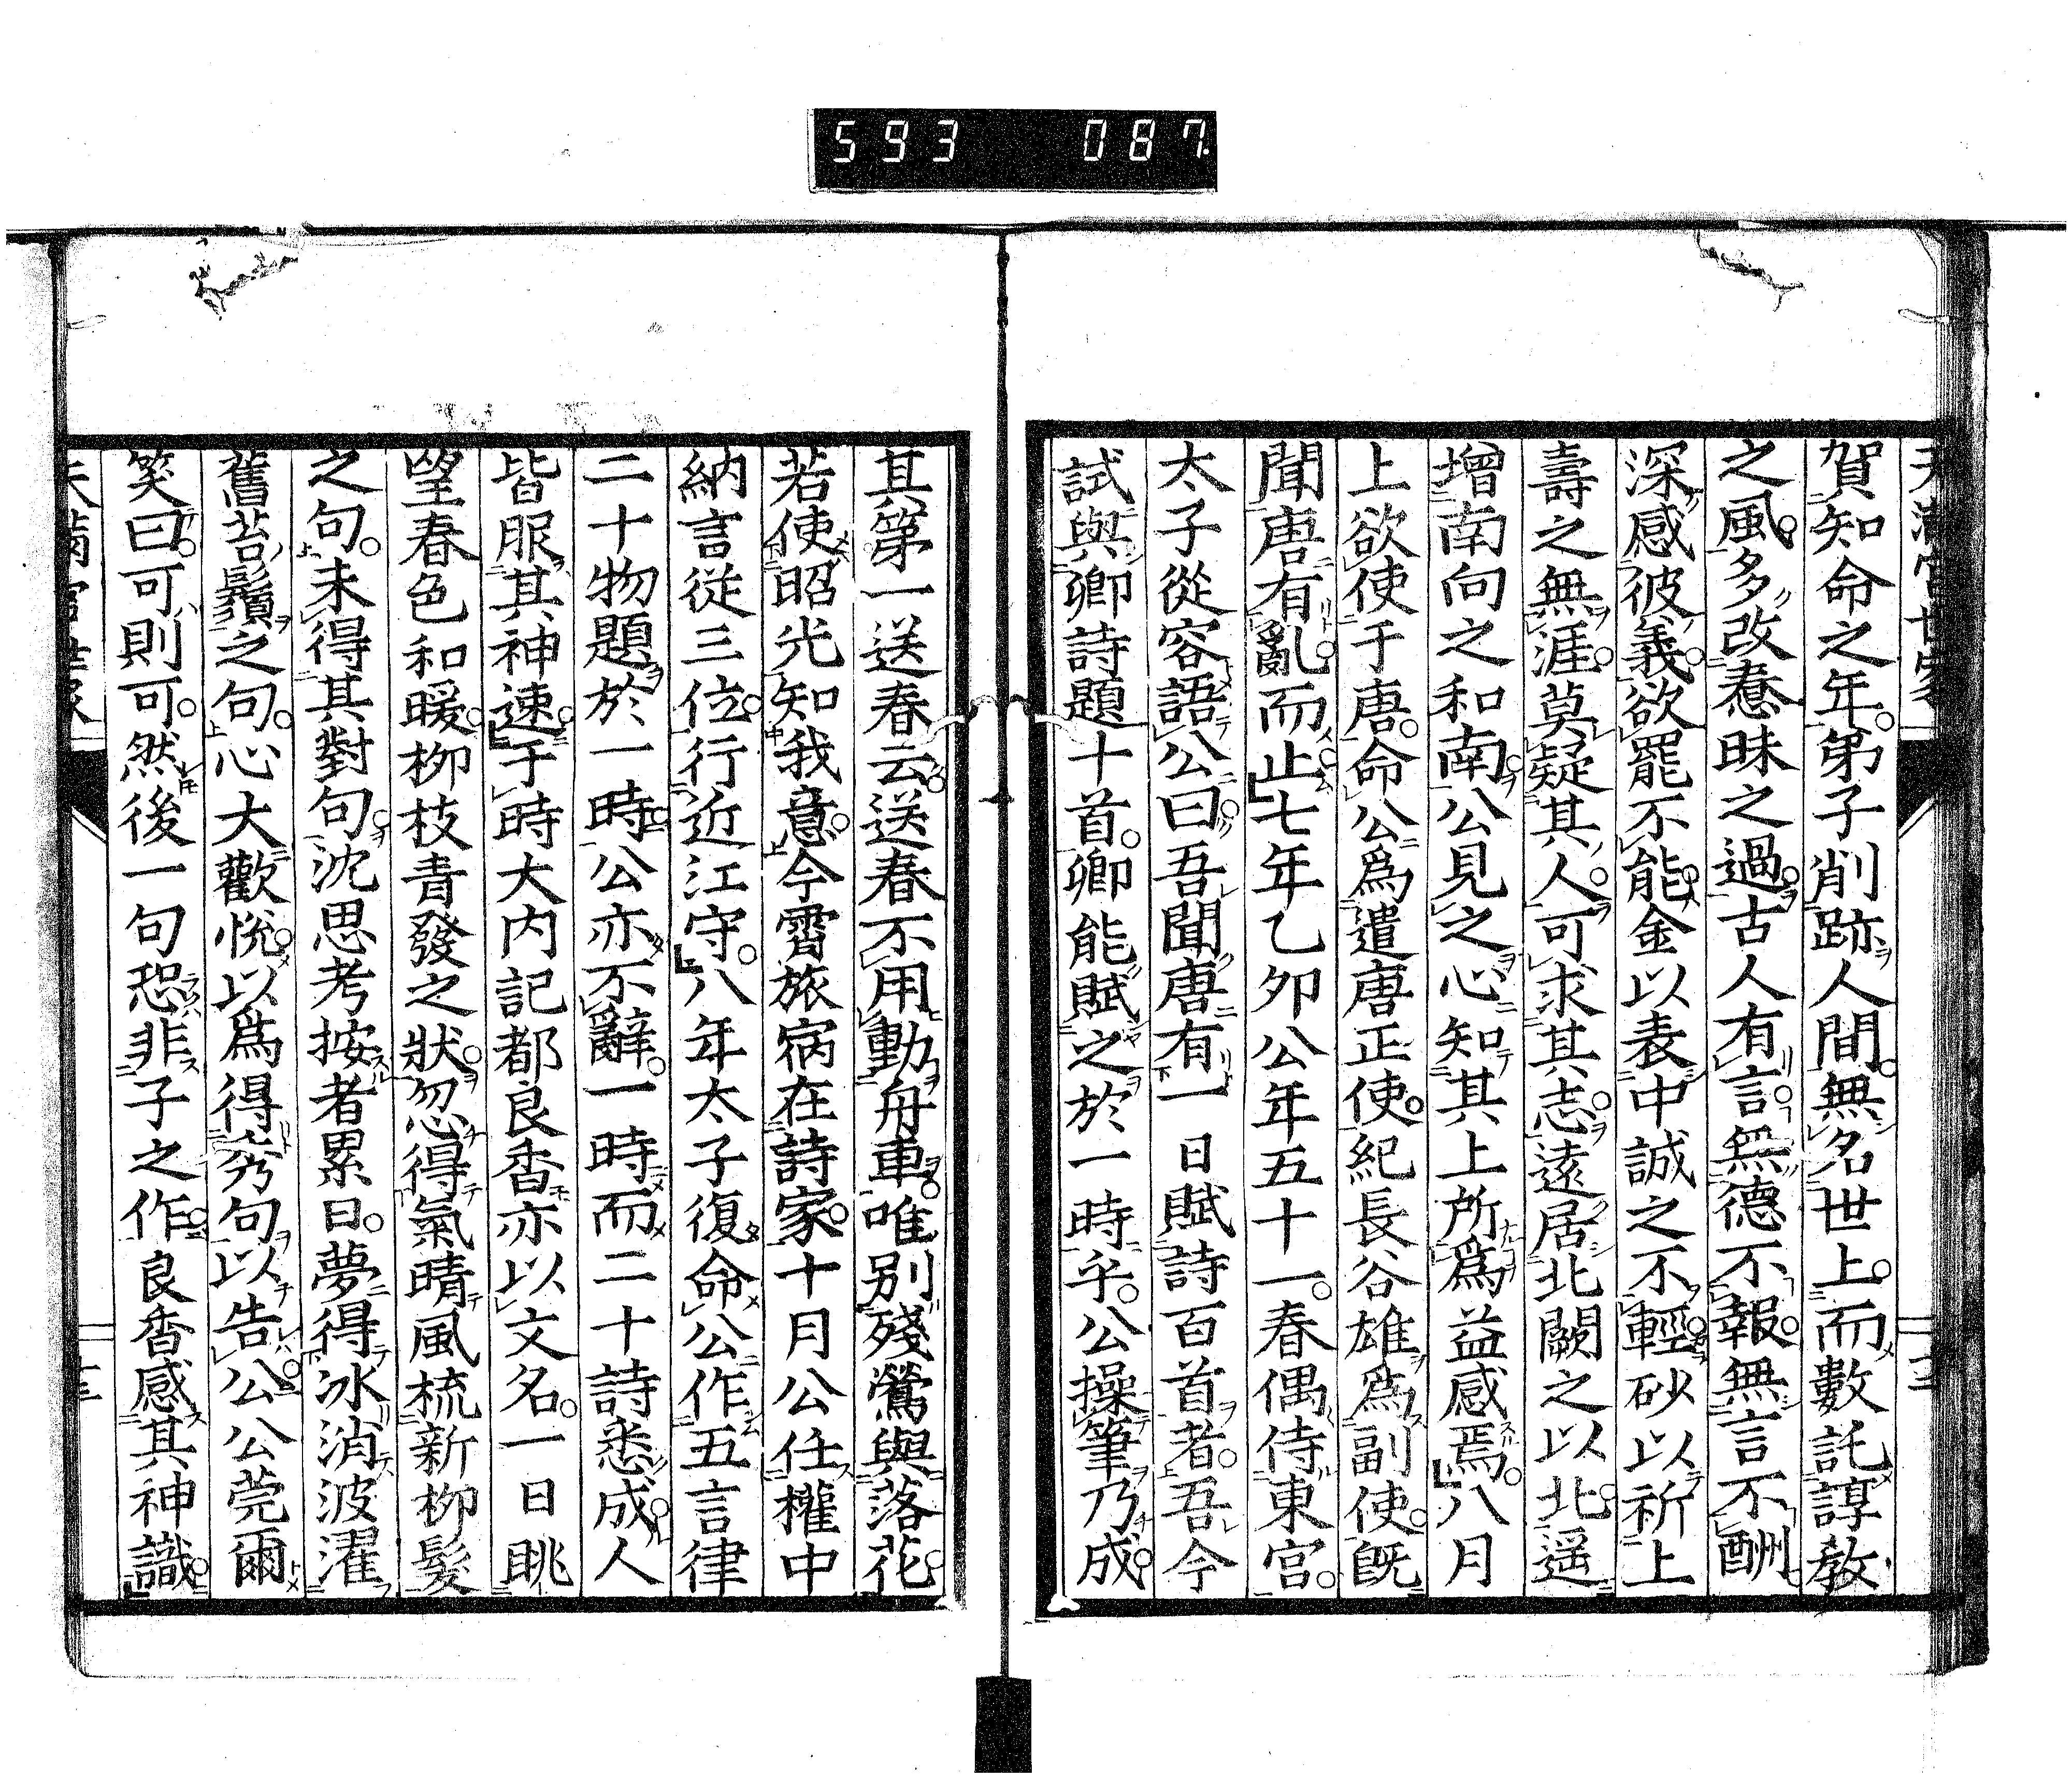 593 087
賀知命之年。弟子削跡人間。無名世上。而數託諄教
之風。多改惷昧之過。古人有言。無德不報。無言不酬
深感彼義。欲罷不能。金以表中誠之不輕。砂以祈上
壽之無涯。莫疑其人。可求其志。遠居北闕之以北。遥
增南向之和南。公見之心知其上所爲益感焉。八月
上欲使于唐。命公爲遣唐正使。紀長谷雄爲副使。旣
聞唐有亂。而止七年乙夘公年五十一。春偶侍東宮。
太子從容語公曰。吾聞唐有一日賦詩百首者。吾今
試與卿詩題十首。卿能賦之於一時乎。公操筆乃成。
其第一送春云。送春不用動舟車。唯別殘鶯與落花。
若使昭光知我意。今霄旅宿在詩家。十月公任權中
納言從三位。行近江守。八年太子復命公作五言律
二十物題於一時。公亦不辭。一時而二十詩悉成。人
皆服其神速。于時大内記都良香亦以文名。一日眺
望春色和暖。柳枝青發之狀。忽得氣晴風梳新柳髮
之句。未得其對句。沈思考按者累日。夢得冰消波濯
舊苔鬚之句。心大歡悅。以爲得秀句以告公。公莞爾
笑曰。可則可。然後一句恐非子之作。良香感其神識。